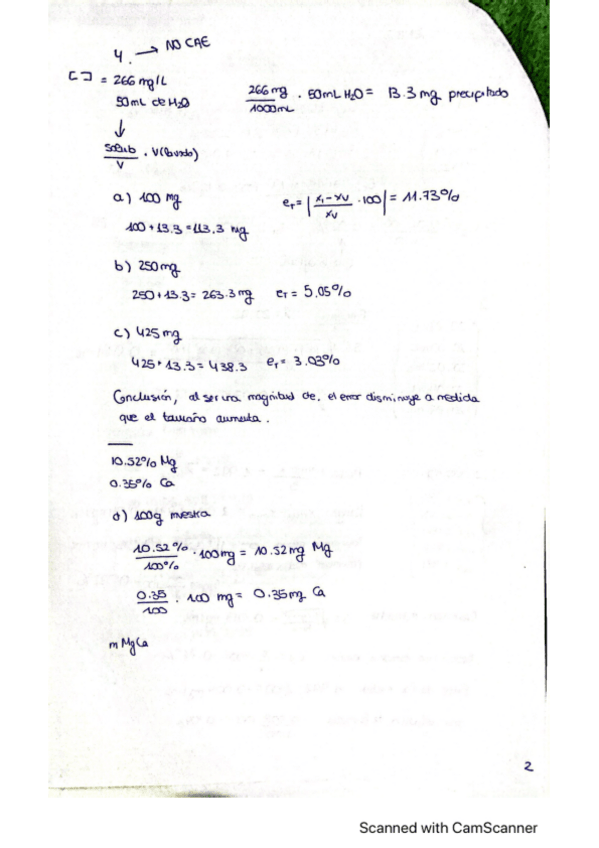 4. → NO CAE
[ ] = 266 mg/L
50mL de H2O
266 mg / 1000mL · 50mL H2O = 13.3 mg precipitado
↓
Solub / V · V(lavado)
a) 100 mg
er = | x1 - xv / xv · 100 | = 11.73%
100 + 13.3 = 113.3 mg
b) 250mg
250 + 13.3 = 263.3 mg er = 5.05%
c) 425 mg
425 + 13.3 = 438.3 er = 3.03%
Conclusión, al ser una magnitud de, el error disminuye a medida
que el tamaño aumenta.
10.52% Mg
0.35% Ca
d) 100g muestra
10.52% / 100% · 100mg = 10.52mg Mg
0.35 / 100 · 100 mg = 0.35mg Ca
m MgCa
2
Scanned with CamScanner